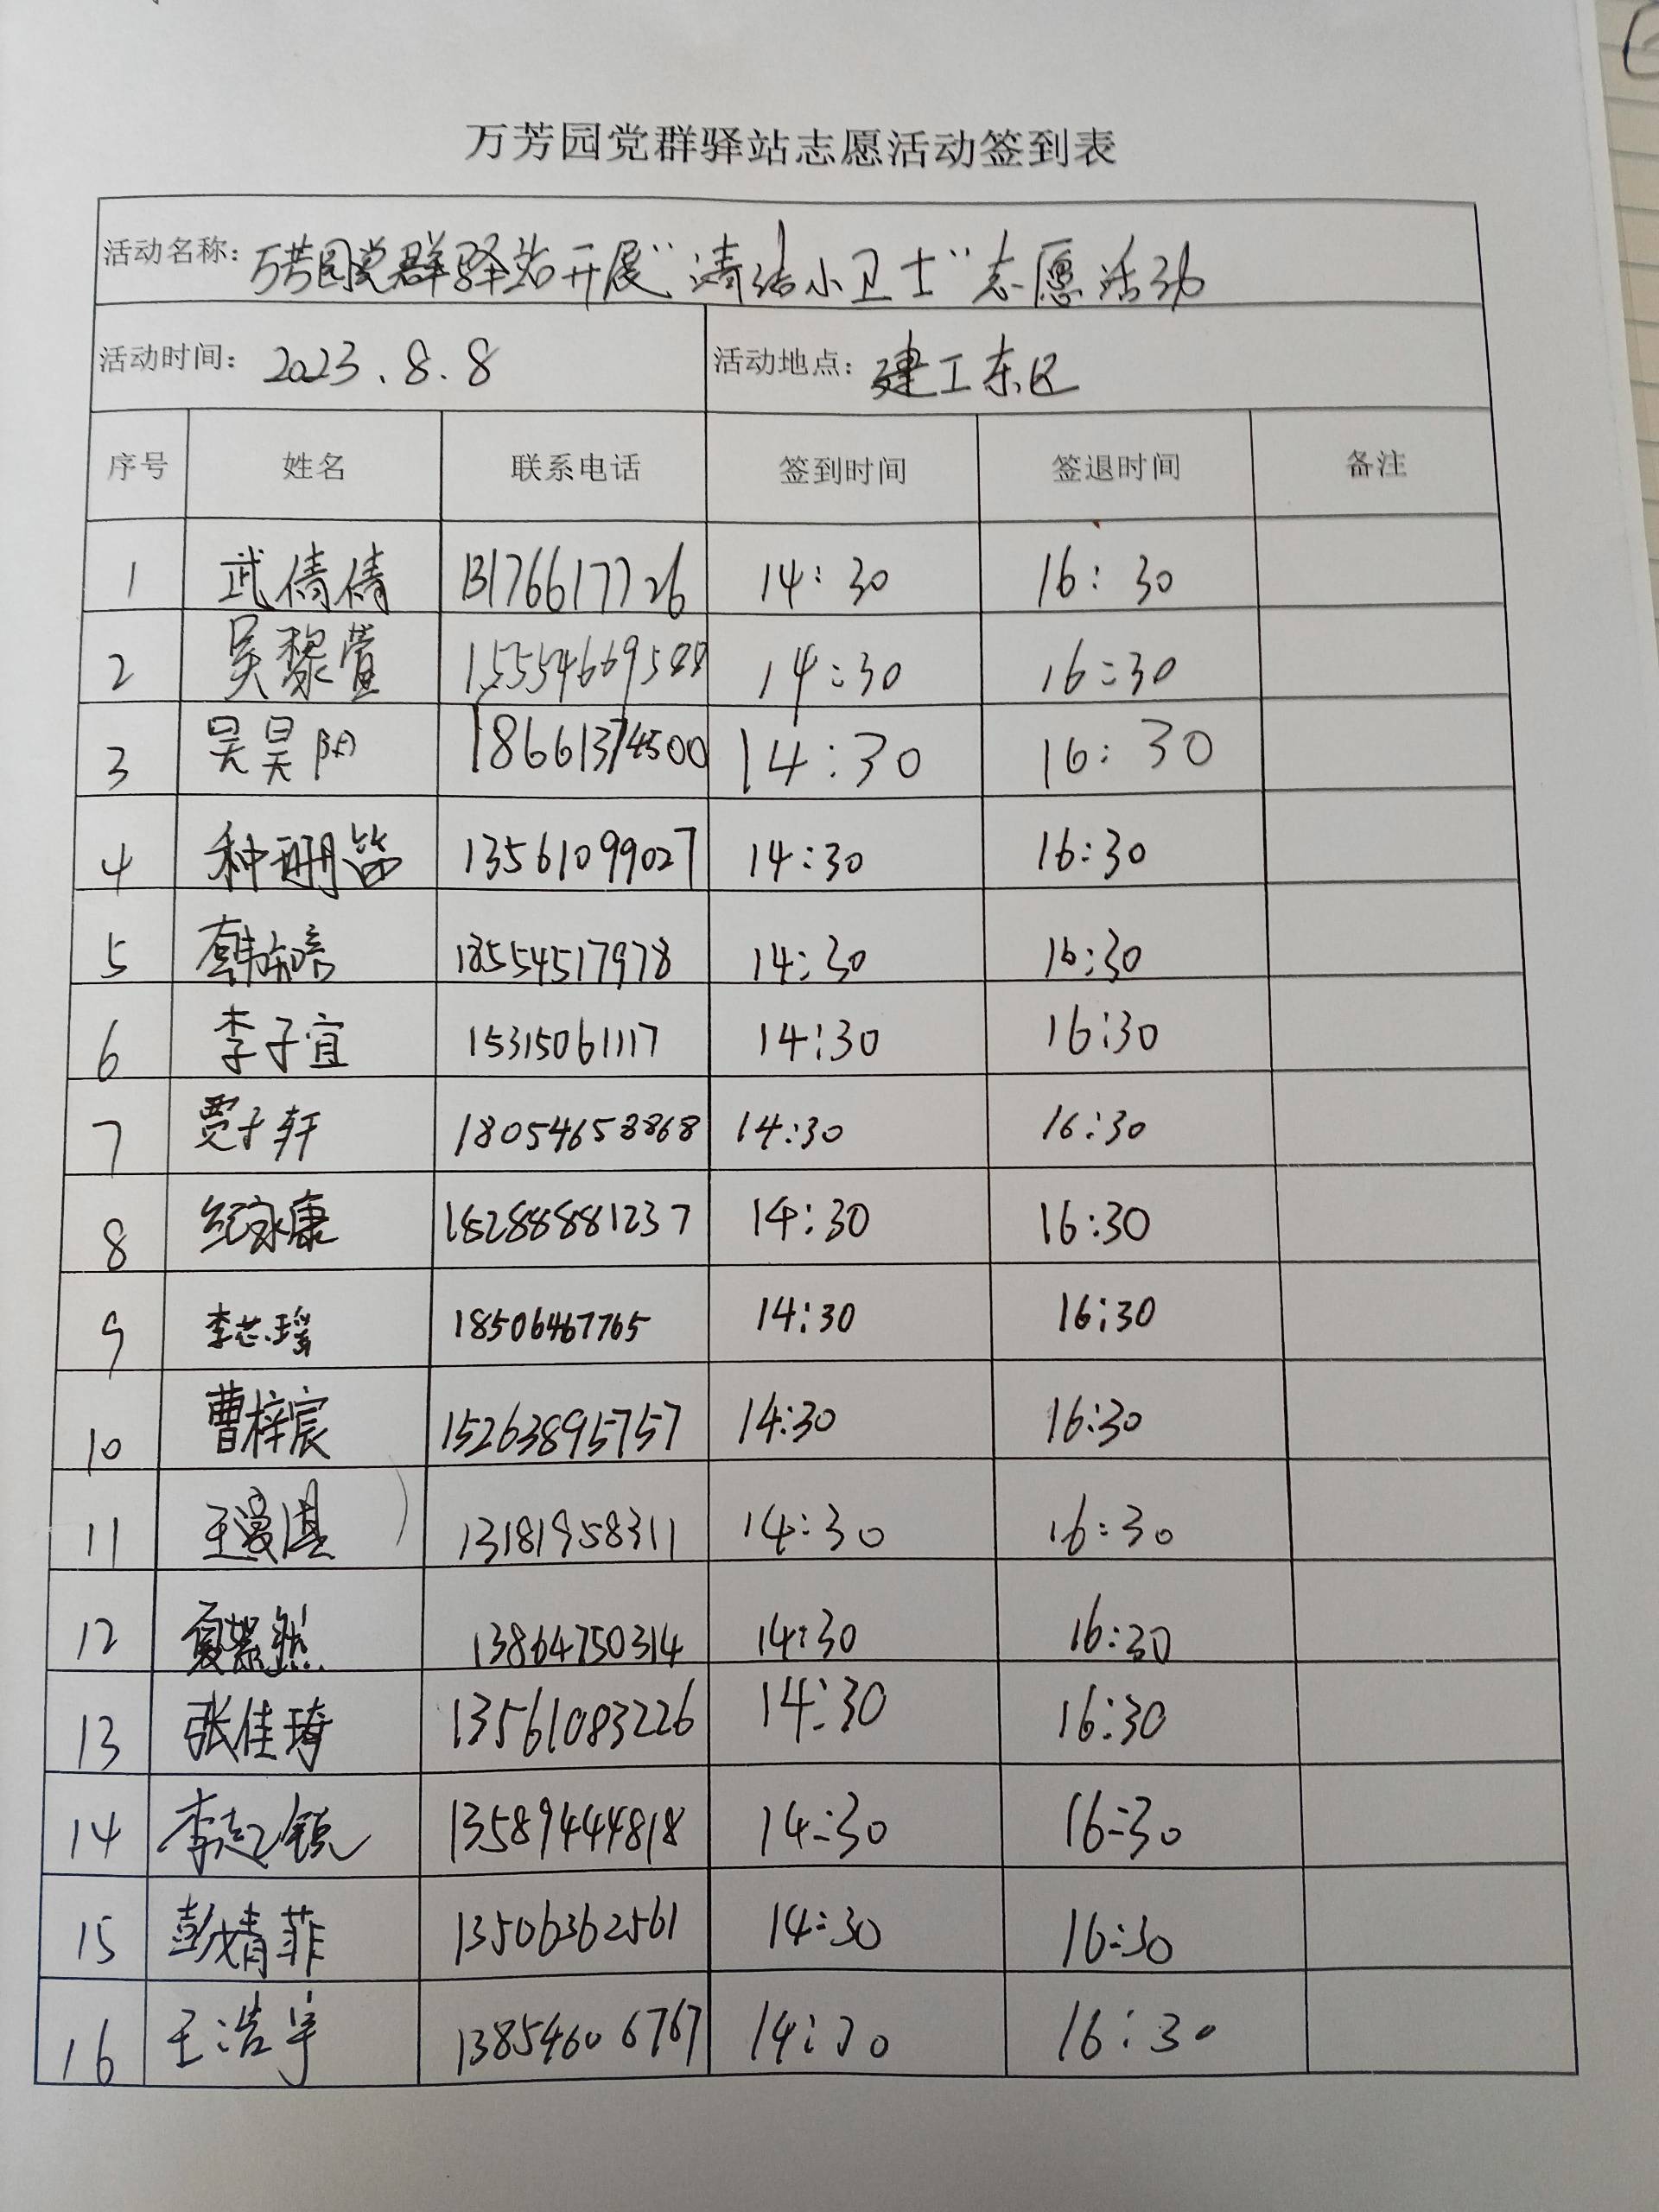 万芳园党群驿站志愿活动签到表
活动名称：万芳园党群驿站开展"清洁小卫士"志愿活动
活动时间：2023.8.8 活动地点：建工东区
序号 姓名 联系电话 签到时间 签退时间 备注
1 武倩倩 13176617726 14:30 16:30
2 吴黎萱 15554669588 14:30 16:30
3 吴昊阳 18661374500 14:30 16:30
4 种珊笛 13561099027 14:30 16:30
5 韩 18554517978 14:30 16:30
6 李子宜 15315061117 14:30 16:30
7 贾子轩 18054653868 14:30 16:30
8 纪家康 15288881237 14:30 16:30
9 李芯瑶 18506467765 14:30 16:30
10 曹梓宸 15263895757 14:30 16:30
11 王漫淇 13181958311 14:30 16:30
12 夏 然 13864750314 14:30 16:30
13 张佳琦 13561083226 14:30 16:30
14 李 锐 13589444818 14:30 16:30
15 彭婧菲 13506362561 14:30 16:30
16 王浩宇 13854606767 14:30 16:30